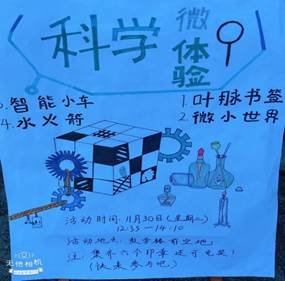 科学
微体验
1.叶脉书签
2.微小世界
3.智能小车
4.水火箭
活动时间:11月30日(星期二)
12:35—14:10
活动地点:教学楼前空地
注:集齐六个印章还可兑奖!
(快来参与吧)
无他相机